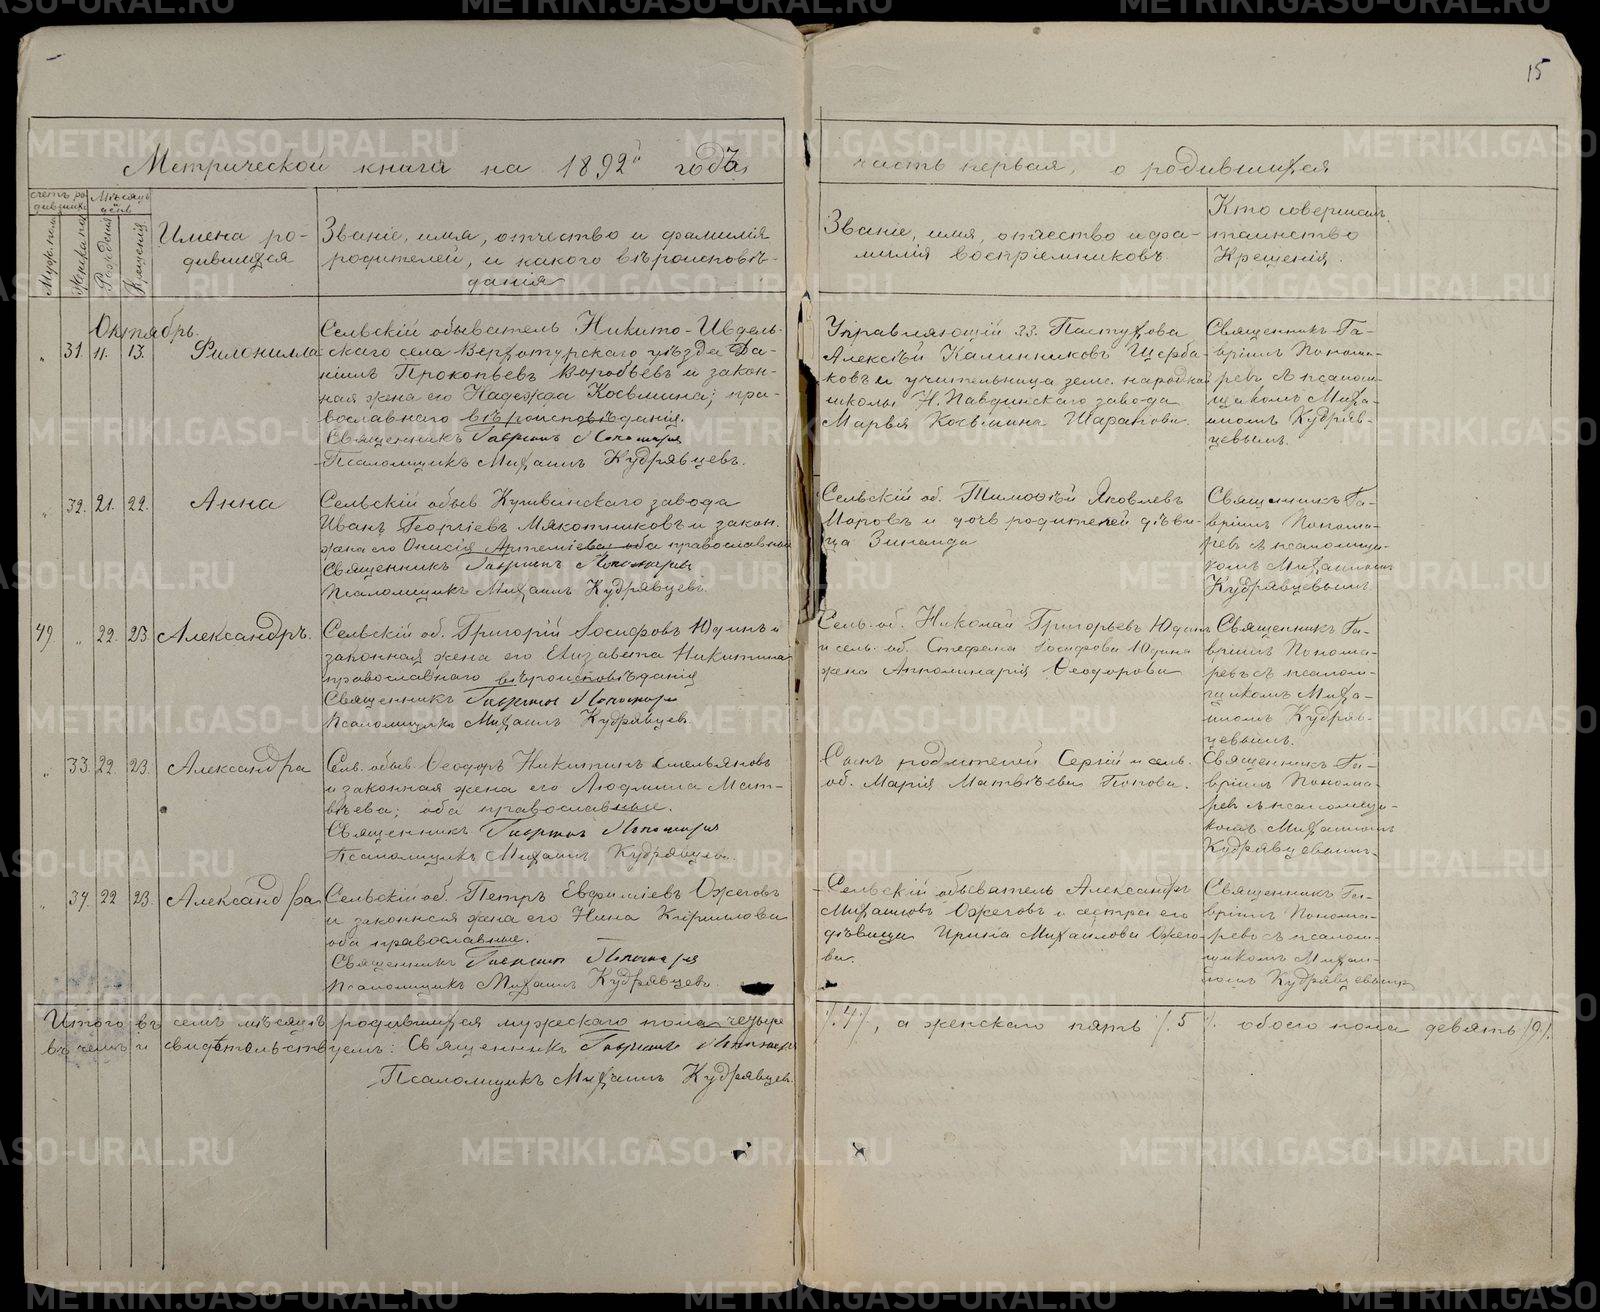 15
Метрической книги на 1892й годъ
часть первая, о родившихся
счетъ ро-
дившихся
Мѣсяцъ
день
Мужеска
Женска
Рожденія
Крещенія
Имена ро-
дившихся
Званіе, имя, отчество и фамилія
родителей, и какого вѣроисповѣ-
данія
Званіе, имя, отчество и фа-
милія воспріемниковъ.
Кто совершалъ
таинство
Крещенія.
Октябрь.
31. 11. 13. Филонилла
Сельскій обыватель Никито-Ивдель-
скаго села Верхотурскаго уѣзда Да-
ніилъ Прокопьевъ Воробьевъ и закон-
ная жена его Надежда Косьмина; пра-
вославнаго вѣроисповѣданія.
Священникъ Гавріилъ Пономаревъ
Псаломщикъ Михаилъ Кудрявцевъ.
Управляющій зз. Пастухова
Алексѣй Калинниковъ Щерба-
ковъ и учительница земс. народной
школы Н. Павдинскаго завода
Марья Косьмина Шарапова.
Священникъ Га-
вріилъ Понома-
ревъ съ псалом-
щикомъ Миха-
иломъ Кудряв-
цевымъ.
32. 21. 22. Анна
Сельскій обыв Кушвинскаго завода
Иванъ Георгіевъ Мякотниковъ и закон.
жена его Онисія Артеміева оба православные
Священникъ Гавріилъ Пономаревъ
Псаломщикъ Михаилъ Кудрявцевъ.
Сельскій об. Тимоѳѣй Яковлевъ
Маровъ и дочь родителей дѣви-
ца Зинаида
Священникъ Га-
вріилъ Понома-
ревъ съ псаломщи-
комъ Михаиломъ
Кудрявцевымъ.
49 22. 23. Александръ.
Сельскій об. Григорій Іосифовъ Юдинъ и
законная жена его Елизавета Никитина
православнаго вѣроисповѣданія
Священникъ Гавріилъ Пономаревъ
Псаломщикъ Михаилъ Кудрявцевъ.
Сель. об. Николай Григорьевъ Юдинъ
и сель. об. Стефана Іосифова Юдина
жена Апполинарія Ѳеодорова
Священникъ Га-
вріилъ Понома-
ревъ съ псалом-
щикомъ Миха-
иломъ Кудряв-
цевымъ.
33. 22. 23. Александра
Сель. обыв. Ѳеодоръ Никитинъ Емельяновъ
и законная жена его Людмила Мат-
вѣева; оба православные.
Священникъ Гавріилъ Пономаревъ
Псаломщикъ Михаилъ Кудрявцевъ.
Сынъ родителей Сергій и сель.
об. Марія Матвѣева Попова.
Священникъ Га-
вріилъ Понома-
ревъ съ псаломщи-
комъ Михаиломъ
Кудрявцевымъ.
34. 22 23. Александра
Сельскій об. Петръ Евфиміевъ Ожеговъ
и законная жена его Нина Кириллова
оба православные.
Священникъ Гавріилъ Пономаревъ
Псаломщикъ Михаилъ Кудрявцевъ.
Сельскій обыватель Александръ
Михаиловъ Ожеговъ и сестра его
дѣвица Ирина Михаилова Ожего-
ва.
Священникъ Га-
вріилъ Понома-
ревъ съ псалом-
щикомъ Миха-
иломъ Кудрявцевымъ
Итого въ семъ мѣсяцѣ родившихся мужескаго пола четыре /.4/., а женскаго пять /.5/. обоего пола девять /9/.
въ чемъ и свидѣтельствуемъ: Священникъ Гавріилъ Пономаревъ
Псаломщикъ Михаилъ Кудрявцевъ.
METRIKI.GASO-URAL.RU